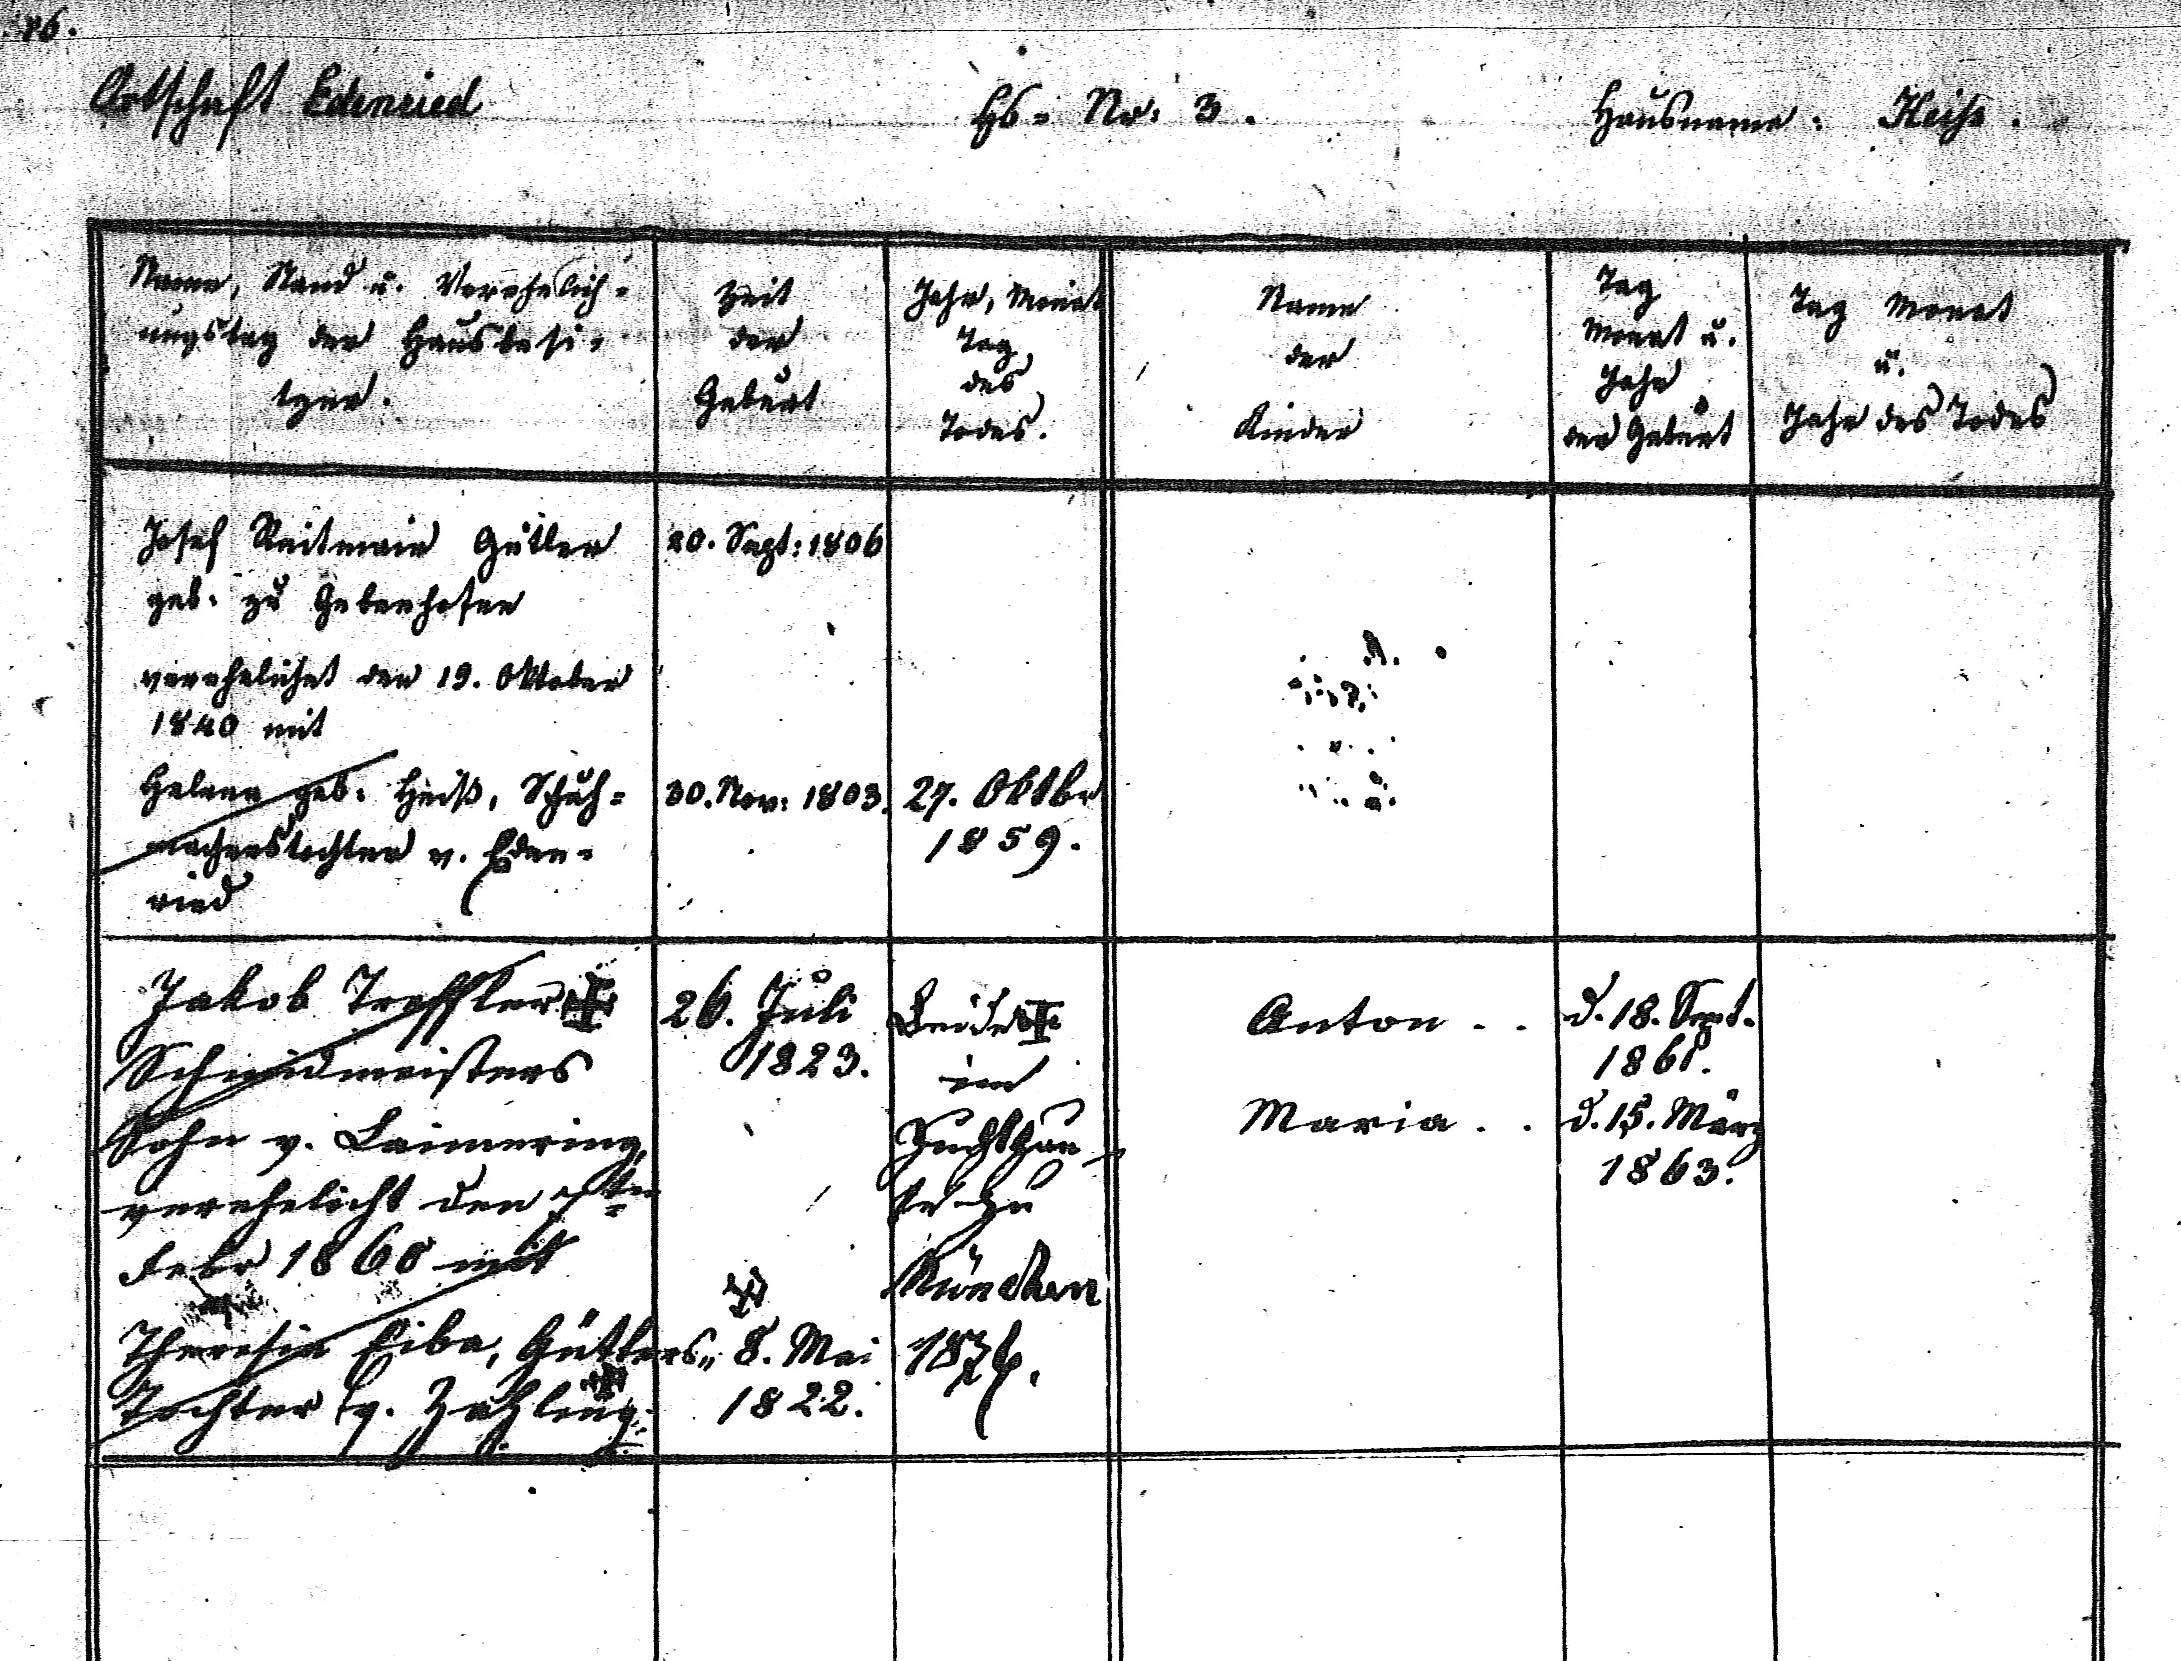 Ortschaft Edenried Hs= Nr: 3. Hausname: Heiß.
Name, Stand u. Verehelich=
ungstag der Hausbesi=
tzer.
Zeit
der
Geburt
Jahr, Monat
Tag
des
Todes.
Name
der
Kinder
Tag
Monat u.
Jahr
der Geburt
Tag Monat
u.
Jahr des Todes
Josef Reitmair Gütler 20. Sept: 1806
geb. zu Gebenhofen
verehelichet den 19. Oktober
1840 mit
Helena geb. Heiß, Schuh= 30. Nov: 1803. 27. Oktbr
macherstochter v. Eden= 1859.
ried
Jakob Treffler 26. Juli Beide Anton . . d. 18. Sept.
Schmidmeisters 1823. im 1861.
Sohn v. Laimering, Zuchthau Maria . . d. 15. März
verehelicht den 7ten se zu 1863.
Febr 1860 mit München
Theresia Eibe, Gütlers= 8. Mai 1874.
Tochter v. Zahling. 1822.